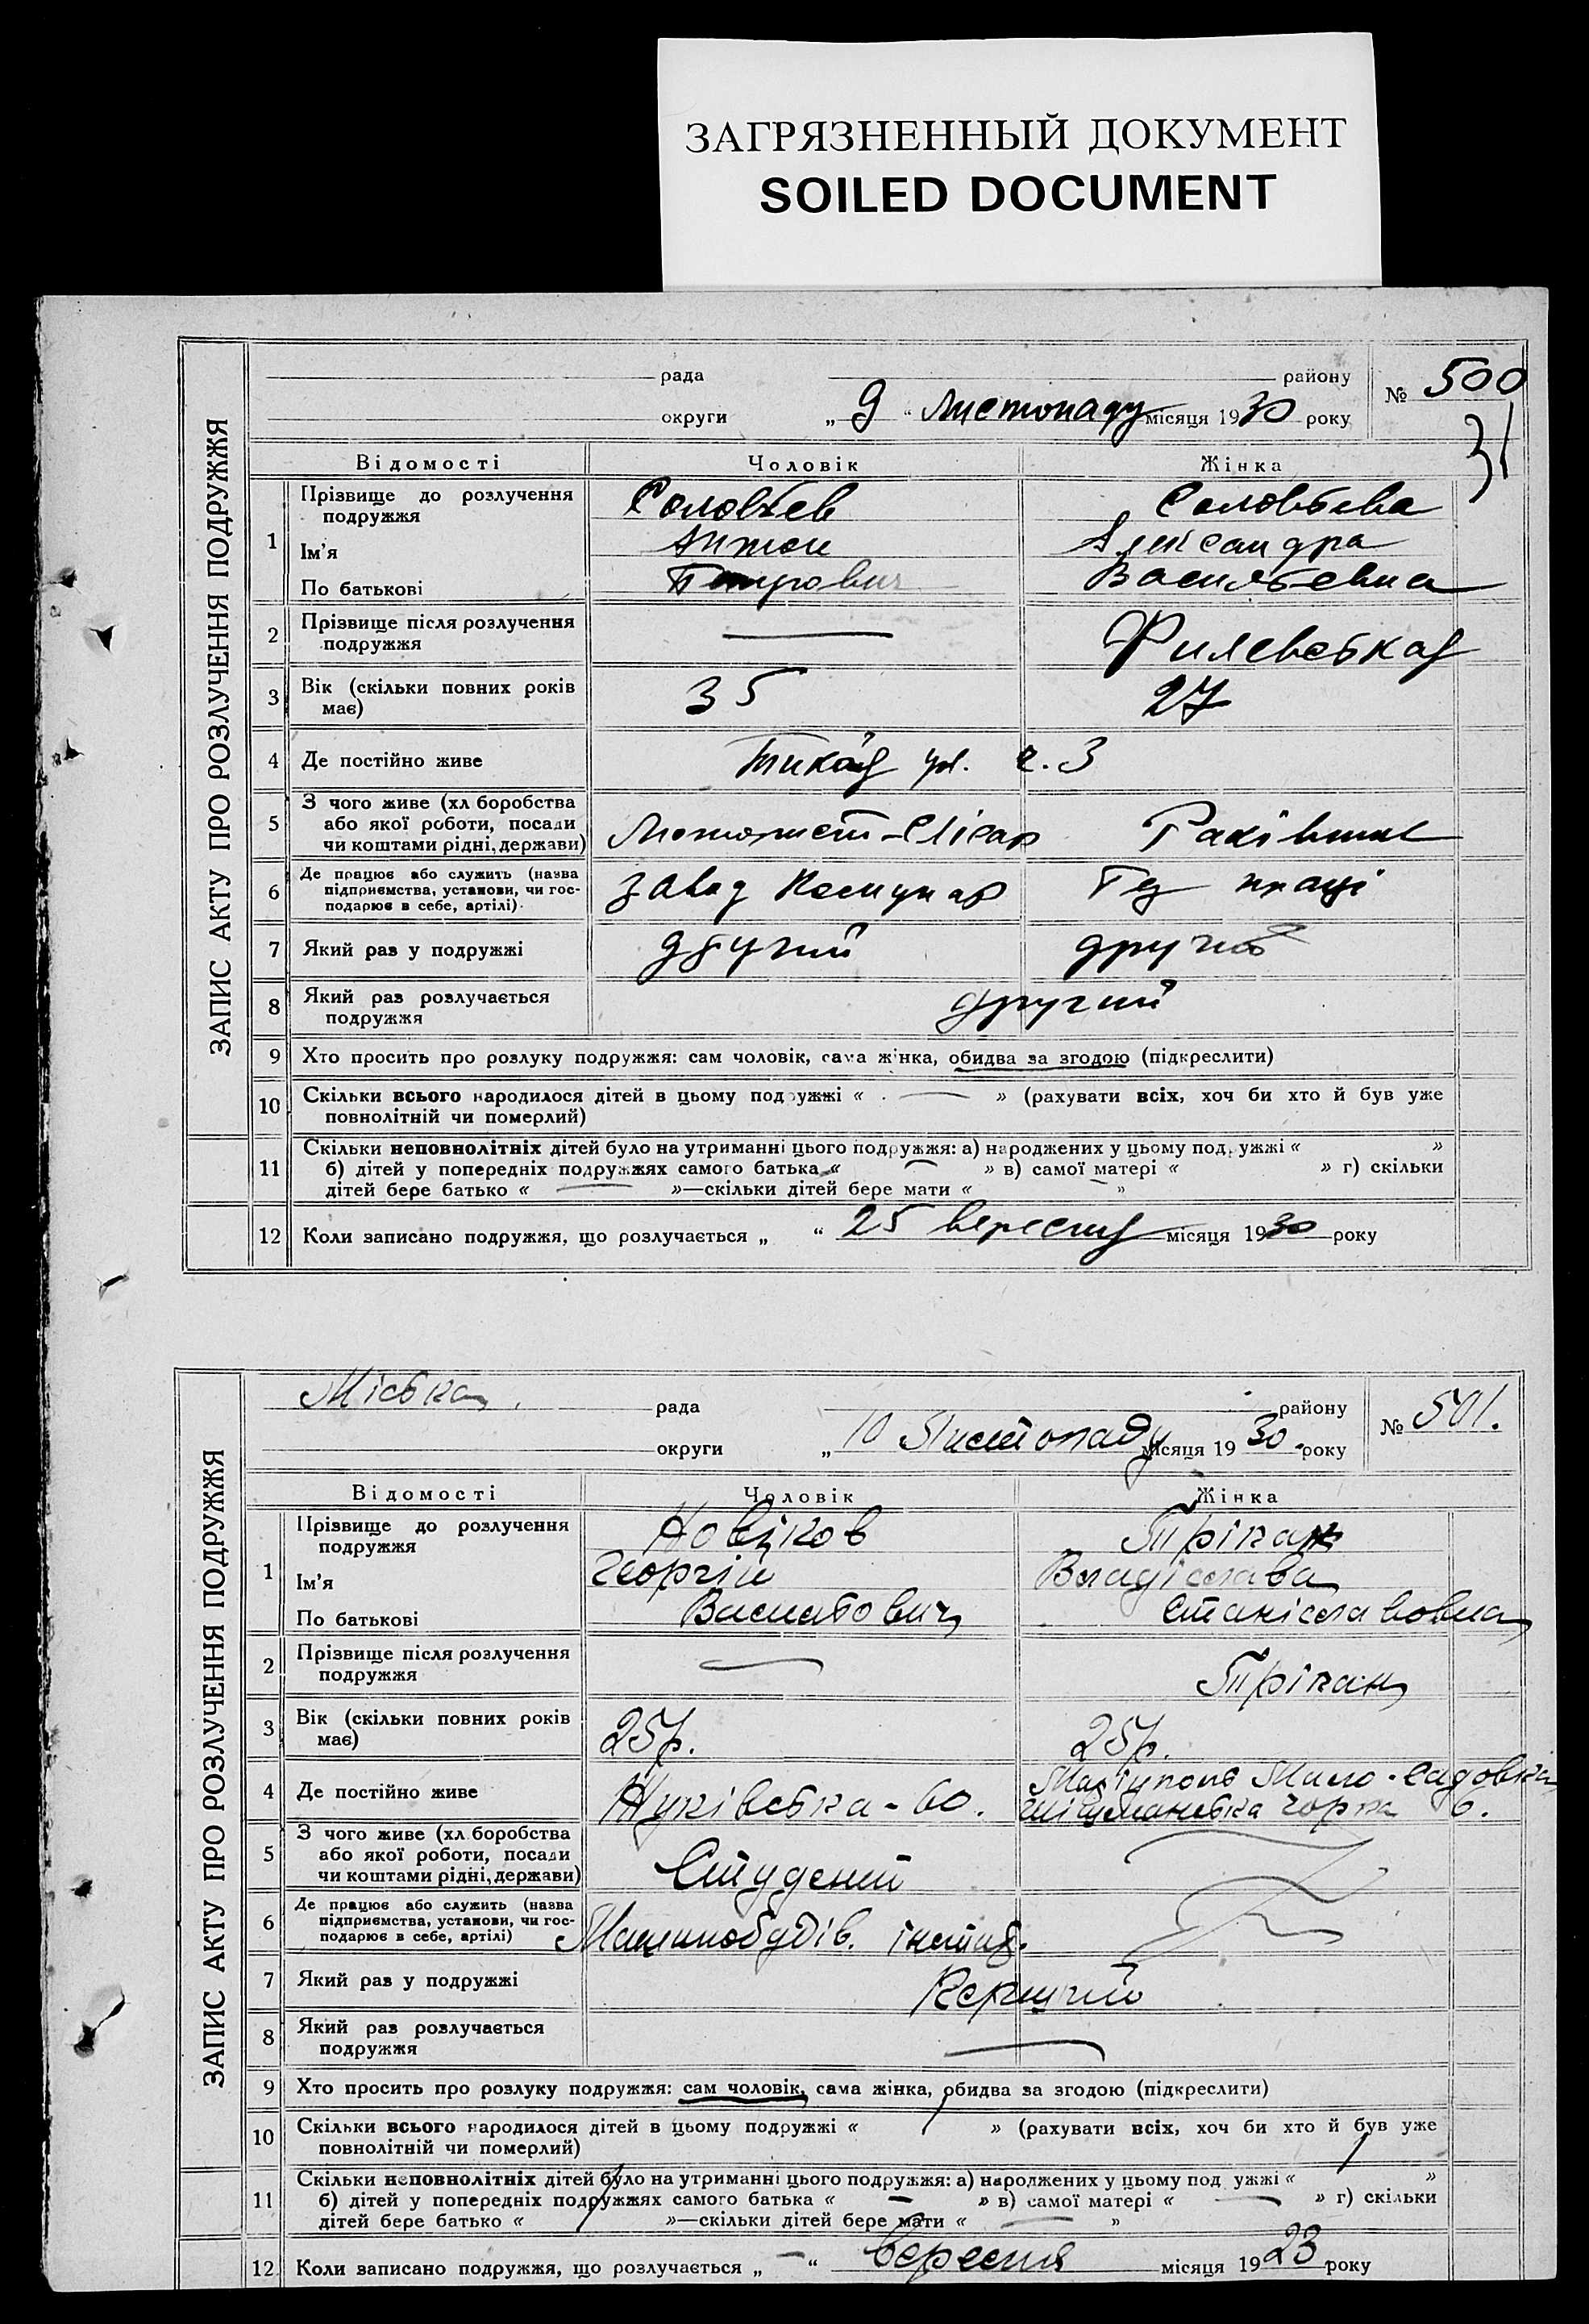 ЗАГРЯЗНЕННЫЙ ДОКУМЕНТ
SOILED DOCUMENT
ЗАПИС АКТУ ПРО РОЗЛУЧЕННЯ ПОДРУЖЖЯ
рада району № 500
округи „ 9 “ Листопаду місяця 1930 року
31
Відомості Чоловік Жінка
1 Прізвище до розлучення подружжя Соловьев Соловьева
Ім'я Антон Александра
По батькові Петрович Васильевна
2 Прізвище після розлучення
подружжя — Филевська
3 Вік (скільки повних років
має) 35 27
4 Де постійно живе ул. ч. 3
5 З чого живе (хл боробства
або якої роботи, посади
чи коштами рідні, держави) Слісар
6 Де працює або служить (назва
підприємства, установи, чи гос-
подарює в себе, артілі) завод Комунар праці
7 Який раз у подружжі другий
8 Який раз розлучається
подружжя другий
9 Хто просить про розлуку подружжя: сам чоловік, сама жінка, обидва за згодою (підкреслити)
10 Скільки всього народилося дітей в цьому подружжі « — » (рахувати всіх, хоч би хто й був уже
повнолітній чи померлий)
11 Скільки неповнолітніх дітей було на утриманні цього подружжя: а) народжених у цьому подружжі « »
б) дітей у попередніх подружжях самого батька « — » в) самої матері « » г) скільки
дітей бере батько « — »—скільки дітей бере мати « — »
12 Коли записано подружжя, що розлучається „ “ 25 вересня місяця 1930 року
ЗАПИС АКТУ ПРО РОЗЛУЧЕННЯ ПОДРУЖЖЯ
Міська рада району № 501.
округи „ 10 Листопаду місяця 1930. року
Відомості Чоловік Жінка
1 Прізвище до розлучення
подружжя Новіков Тріпан
Ім'я Георгій Владіслава
По батькові Станіславовна
2 Прізвище після розлучення
подружжя — Тріпан
3 Вік (скільки повних років
має) 25 р. 25 р.
4 Де постійно живе Жуківська - 60. Маріуполь Мало-Садовка
горка 6.
5 З чого живе (хл боробства
або якої роботи, посади
чи коштами рідні, держави) Студент
6 Де працює або служить (назва
підприємства, установи, чи гос-
подарює в себе, артілі) Машинобудів. інстит.
7 Який раз у подружжі Перший
8 Який раз розлучається
подружжя —
9 Хто просить про розлуку подружжя: сам чоловік, сама жінка, обидва за згодою (підкреслити)
10 Скільки всього народилося дітей в цьому подружжі « » (рахувати всіх, хоч би хто й був уже
повнолітній чи померлий)
11 Скільки неповнолітніх дітей було на утриманні цього подружжя: а) народжених у цьому подружжі « »
б) дітей у попередніх подружжях самого батька « — » в) самої матері « — » г) скільки
дітей бере батько « »—скільки дітей бере мати « — »
12 Коли записано подружжя, що розлучається „ — “ Вересня місяця 1923 року